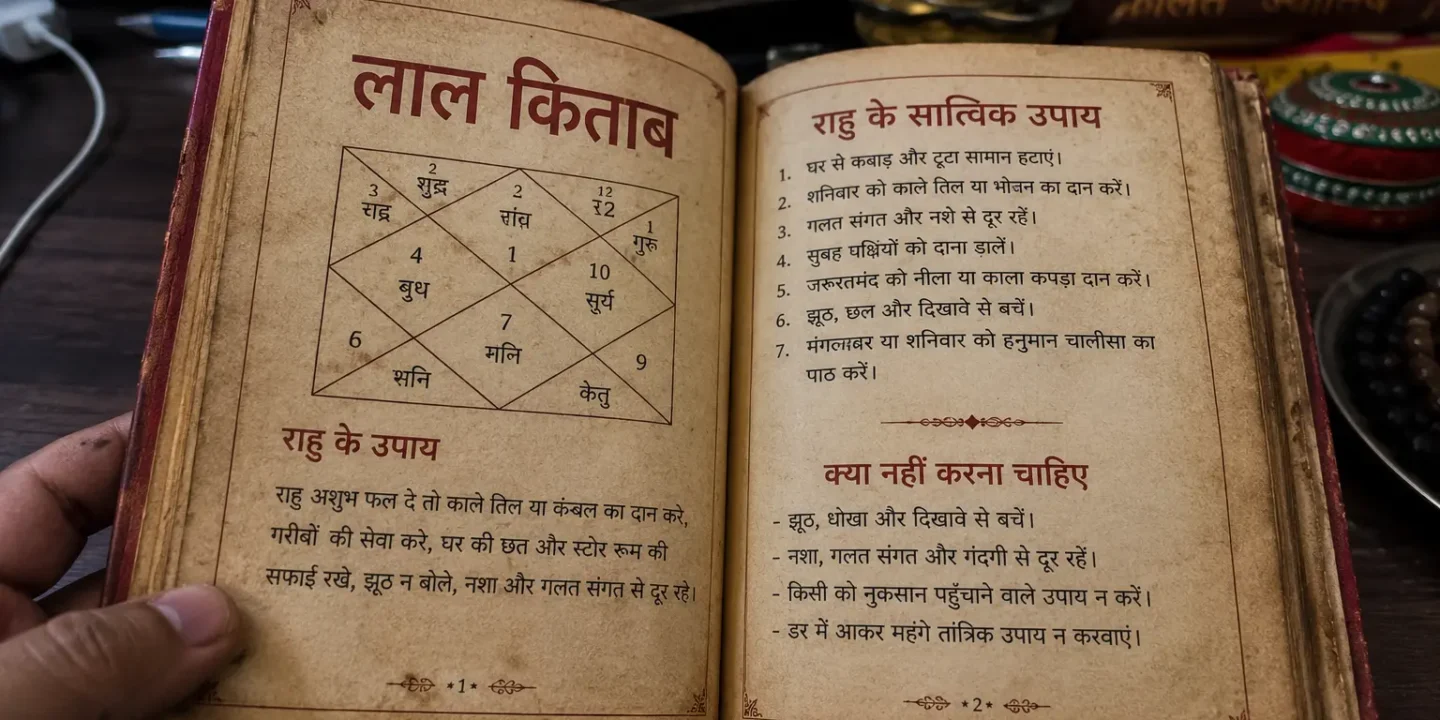 लाल किताब
2
शुद्र
3
2
12
र2
1
गुरु
4
बुध
1
10
सूर्य
6
7
मलि
9
सनि
केतु
राहु के उपाय
राहु अशुभ फल दे तो काले तिल या कंबल का दान करे,
गरीबों की सेवा करे, घर की छत और स्टोर रूम की
सफाई रखे, झूठ न बोले, नशा और गलत संगत से दूर रहे।
*1*
राहु के सात्विक उपाय
1. घर से कबाड़ और टूटा सामान हटाएं।
2. शनिवार को काले तिल या भोजन का दान करें।
3. गलत संगत और नशे से दूर रहें।
4. सुबह को दाना डालें।
5. जरूरतमंद को नीला या काला कपड़ा दान करें।
6. झूठ, छल और दिखावे से बचें।
7. या शनिवार को हनुमान चालीसा का
पाठ करें।
क्या नहीं करना चाहिए
- झूठ, धोखा और दिखावे से बचें।
- नशा, गलत संगत और गंदगी से दूर रहें।
- किसी को नुकसान पहुँचाने वाले उपाय न करें।
- डर में आकर महंगे तांत्रिक उपाय न करवाएं।
*2*